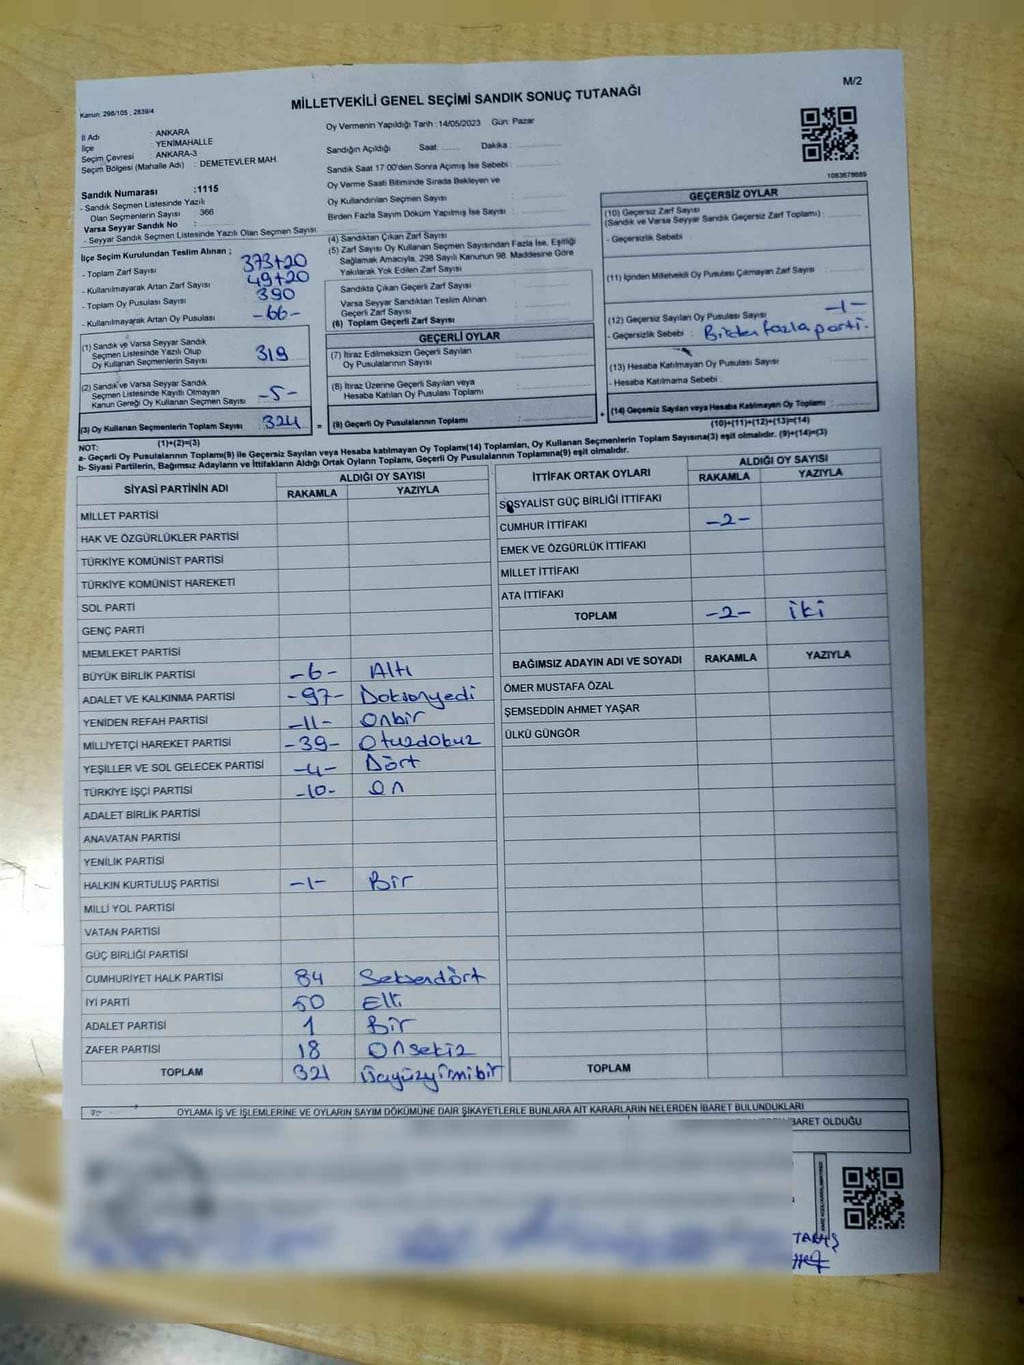 M/2
Kanun: 298/105 , 2839/4
MİLLETVEKİLİ GENEL SEÇİMİ SANDIK SONUÇ TUTANAĞI
İl Adı : ANKARA
İlçe : YENİMAHALLE
Seçim Çevresi : ANKARA-3
Seçim Bölgesi (Mahalle Adı) : DEMETEVLER MAH.
Sandık Numarası :1115
- Sandık Seçmen Listesinde Yazılı
Olan Seçmenlerin Sayısı : 366
Varsa Seyyar Sandık No :
- Seyyar Sandık Seçmen Listesinde Yazılı Olan Seçmen Sayısı:
Oy Vermenin Yapıldığı Tarih :14/05/2023 Gün: Pazar
Sandığın Açıldığı Saat: ...... Dakika : ..............
Sandık Saat 17:00'den Sonra Açılmış İse Sebebi :
Oy Verme Saati Bitiminde Sırada Bekleyen ve
Oy Kullandırılan Seçmen Sayısı :
Birden Fazla Sayım Döküm Yapılmış İse Sayısı :
1083678689
İlçe Seçim Kurulundan Teslim Alınan ;
- Toplam Zarf Sayısı : 373+20
- Kullanılmayarak Artan Zarf Sayısı : 49+20
- Toplam Oy Pusulası Sayısı : 390
- Kullanılmayarak Artan Oy Pusulası : -66-
(1) Sandık ve Varsa Seyyar Sandık
Seçmen Listesinde Yazılı Olup
Oy Kullanan Seçmenlerin Sayısı : 319
(2) Sandık ve Varsa Seyyar Sandık
Seçmen Listesinde Kayıtlı Olmayan
Kanun Gereği Oy Kullanan Seçmen Sayısı : -5-
(3) Oy Kullanan Seçmenlerin Toplam Sayısı : 324 =
(1)+(2)=(3)
(4) Sandıktan Çıkan Zarf Sayısı
(5) Zarf Sayısı Oy Kullanan Seçmen Sayısından Fazla İse, Eşitliği
Sağlamak Amacıyla, 298 Sayılı Kanunun 98. Maddesine Göre
Yakılarak Yok Edilen Zarf Sayısı
Sandıkta Çıkan Geçerli Zarf Sayısı
Varsa Seyyar Sandıktan Teslim Alınan
Geçerli Zarf Sayısı
(6) Toplam Geçerli Zarf Sayısı
GEÇERLİ OYLAR
(7) İtiraz Edilmeksizin Geçerli Sayılan
Oy Pusulalarının Sayısı
(8) İtiraz Üzerine Geçerli Sayılan veya
Hesaba Katılan Oy Pusulası Toplamı
(9) Geçerli Oy Pusulalarının Toplamı : +
GEÇERSİZ OYLAR
(10) Geçersiz Zarf Sayısı
(Sandık ve Varsa Seyyar Sandık Geçersiz Zarf Toplamı) :
- Geçersizlik Sebebi :
(11) İçinden Milletvekili Oy Pusulası Çıkmayan Zarf Sayısı :
(12) Geçersiz Sayılan Oy Pusulası Sayısı : -1-
- Geçersizlik Sebebi : Birden fazla parti.
(13) Hesaba Katılmayan Oy Pusulası Sayısı
- Hesaba Katılmama Sebebi :
(14) Geçersiz Sayılan veya Hesaba Katılmayan Oy Toplamı :
(10)+(11)+(12)+(13)=(14)
NOT:
a- Geçerli Oy Pusulalarının Toplamı(9) ile Geçersiz Sayılan veya Hesaba katılmayan Oy Toplamı(14) Toplamları, Oy Kullanan Seçmenlerin Toplam Sayısına(3) eşit olmalıdır. (9)+(14)=(3)
b- Siyasi Partilerin, Bağımsız Adayların ve İttifakların Aldığı Ortak Oyların Toplamı, Geçerli Oy Pusulalarının Toplamına(9) eşit olmalıdır.
SİYASİ PARTİNİN ADI ALDIĞI OY SAYISI
RAKAMLA YAZIYLA
MİLLET PARTİSİ
HAK VE ÖZGÜRLÜKLER PARTİSİ
TÜRKİYE KOMÜNİST PARTİSİ
TÜRKİYE KOMÜNİST HAREKETİ
SOL PARTİ
GENÇ PARTİ
MEMLEKET PARTİSİ
BÜYÜK BİRLİK PARTİSİ -6- Altı
ADALET VE KALKINMA PARTİSİ -97- Doksanyedi
YENİDEN REFAH PARTİSİ -11- Onbir
MİLLİYETÇİ HAREKET PARTİSİ -39- Otuzdokuz
YEŞİLLER VE SOL GELECEK PARTİSİ -4- Dört
TÜRKİYE İŞÇİ PARTİSİ -10- On
ADALET BİRLİK PARTİSİ
ANAVATAN PARTİSİ
YENİLİK PARTİSİ
HALKIN KURTULUŞ PARTİSİ -1- Bir
MİLLİ YOL PARTİSİ
VATAN PARTİSİ
GÜÇ BİRLİĞİ PARTİSİ
CUMHURİYET HALK PARTİSİ 84 Seksendört
İYİ PARTİ 50 Elli
ADALET PARTİSİ 1 Bir
ZAFER PARTİSİ 18 Onsekiz
TOPLAM 321 Üçyüzyirmibir
İTTİFAK ORTAK OYLARI ALDIĞI OY SAYISI
RAKAMLA YAZIYLA
SOSYALİST GÜÇ BİRLİĞİ İTTİFAKI
CUMHUR İTTİFAKI -2-
EMEK VE ÖZGÜRLÜK İTTİFAKI
MİLLET İTTİFAKI
ATA İTTİFAKI
TOPLAM -2- iki
BAĞIMSIZ ADAYIN ADI VE SOYADI RAKAMLA YAZIYLA
ÖMER MUSTAFA ÖZAL
ŞEMSEDDİN AHMET YAŞAR
ÜLKÜ GÜNGÖR
TOPLAM
OYLAMA İŞ VE İŞLEMLERİNE VE OYLARIN SAYIM DÖKÜMÜNE DAİR ŞİKAYETLERLE BUNLARA AİT KARARLARIN NELERDEN İBARET BULUNDUKLARI
İBARET OLDUĞU